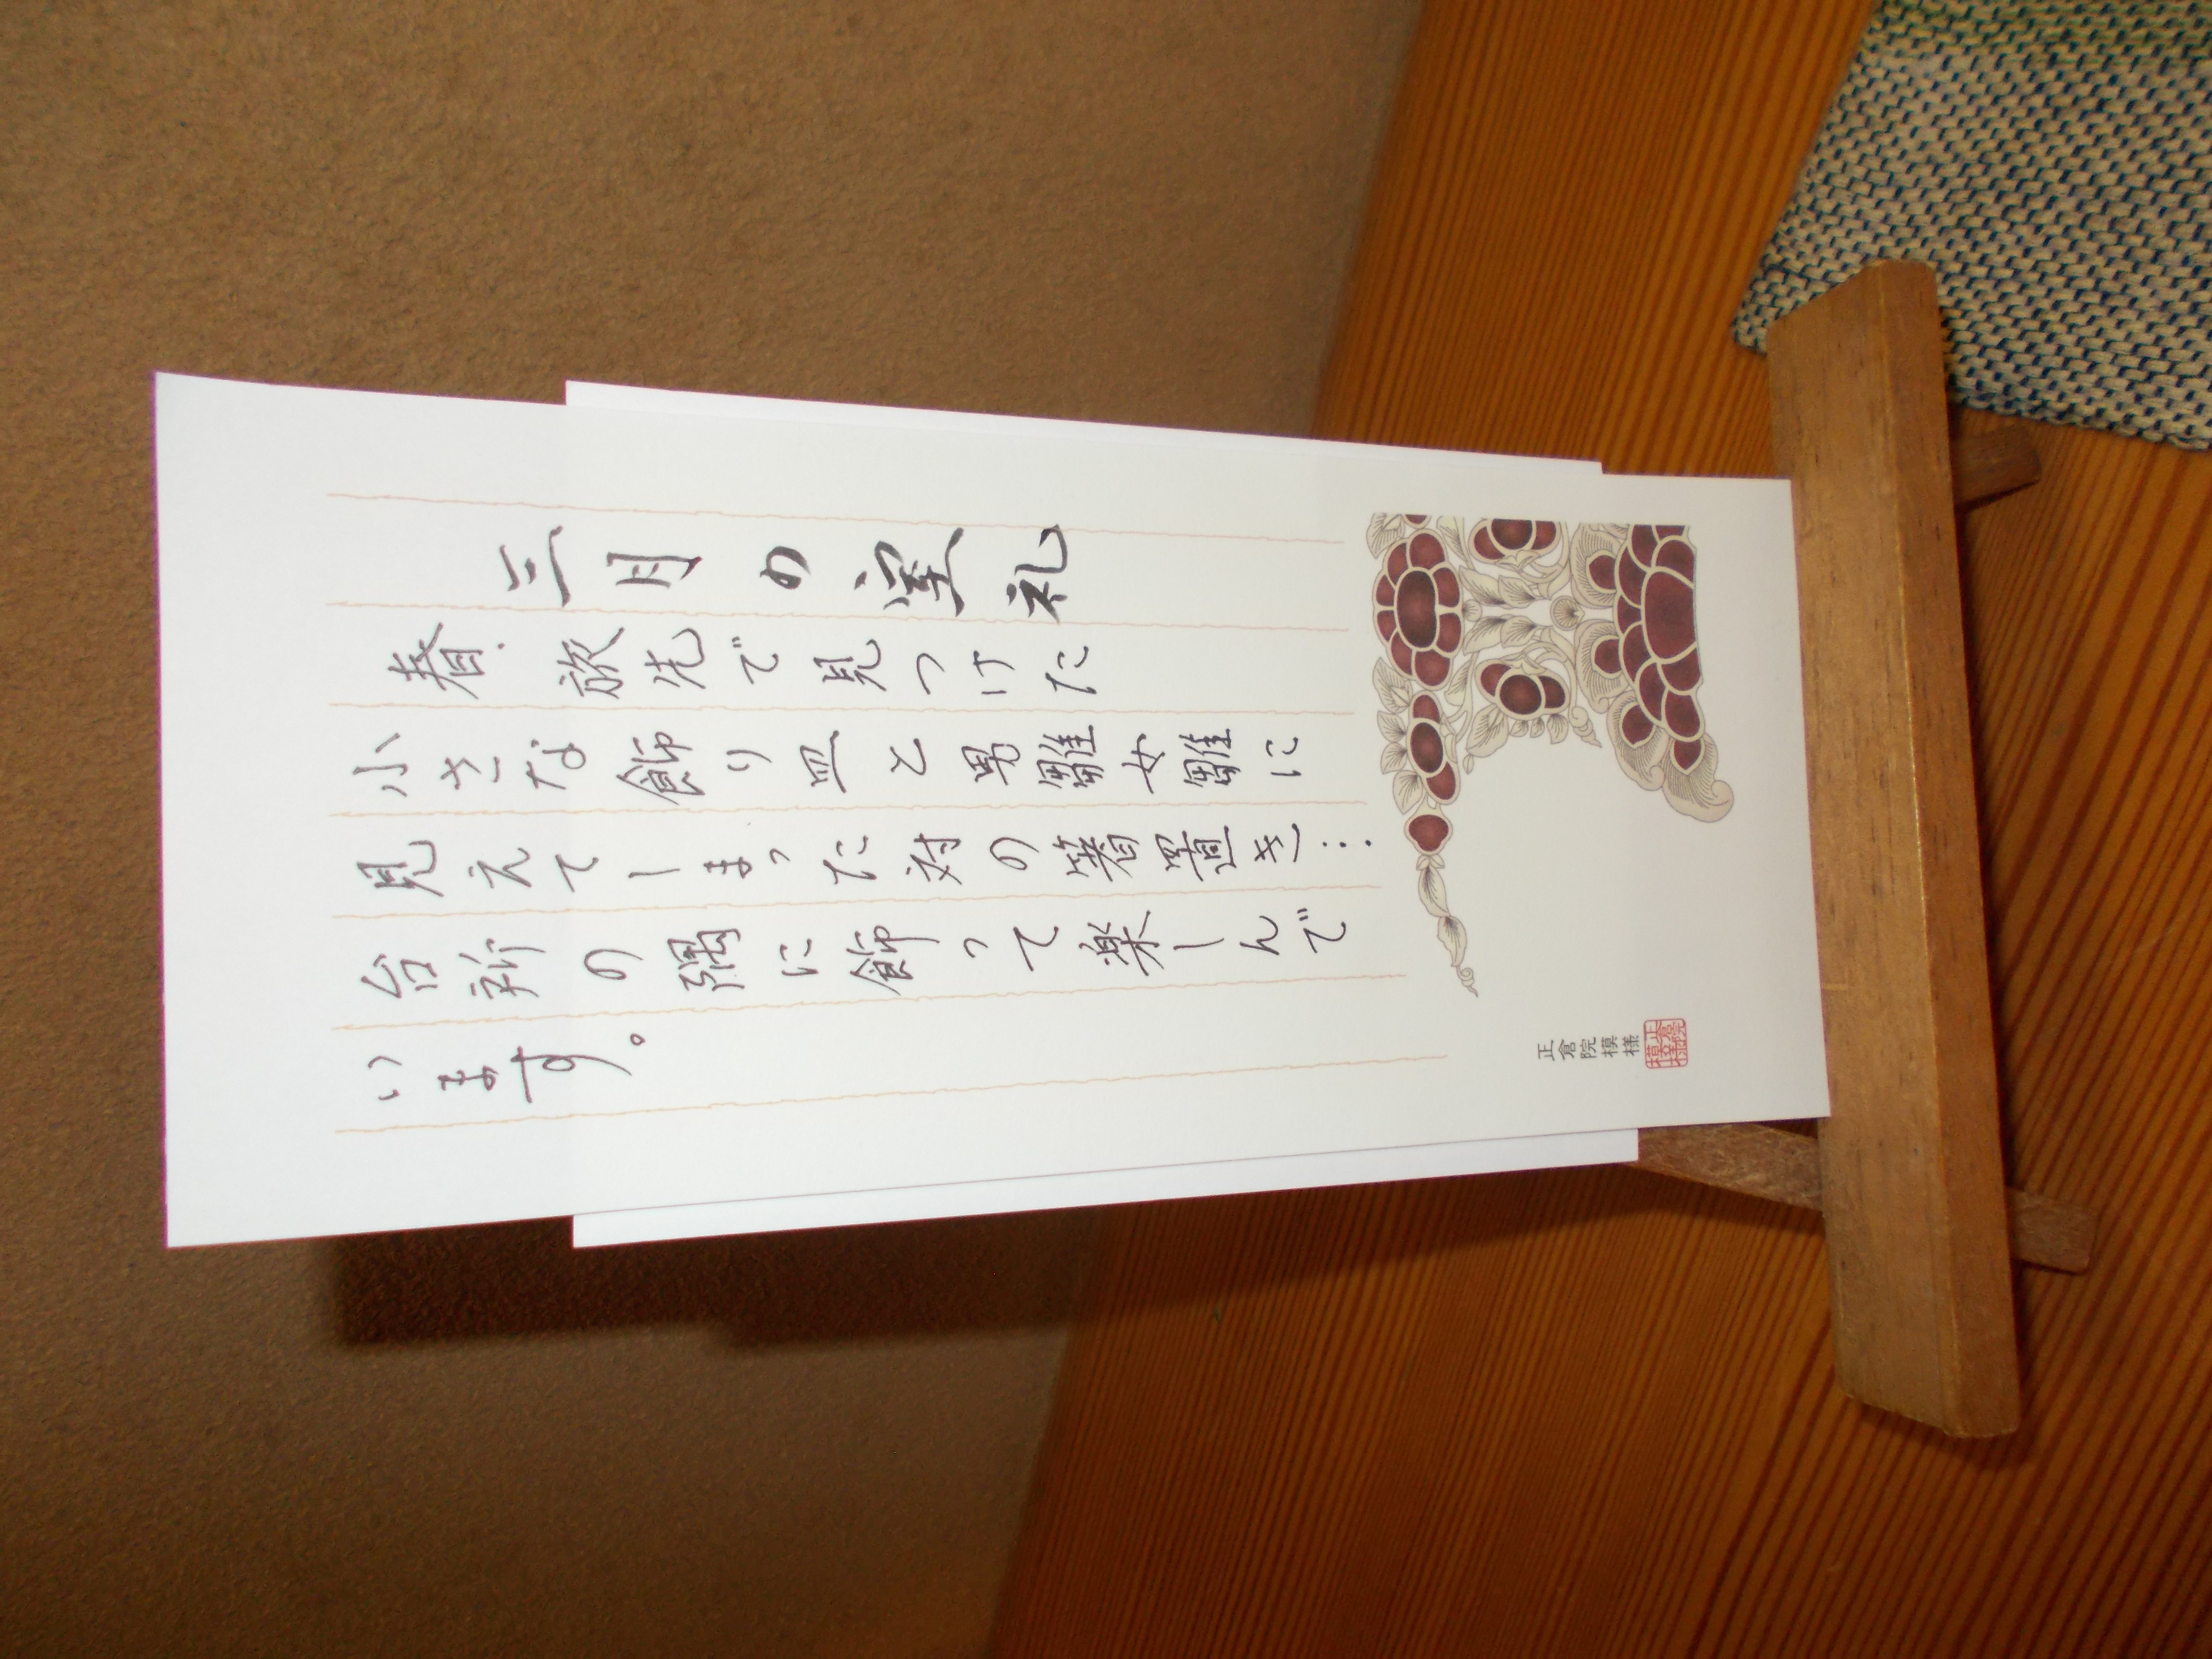 三月の室礼
春. 旅先で見つけた
小さな飾り皿と男雛女雛に
見えてしまった対の箸置き…
台所の隅に飾って楽しんで
います。
正倉院模様
正倉院模様